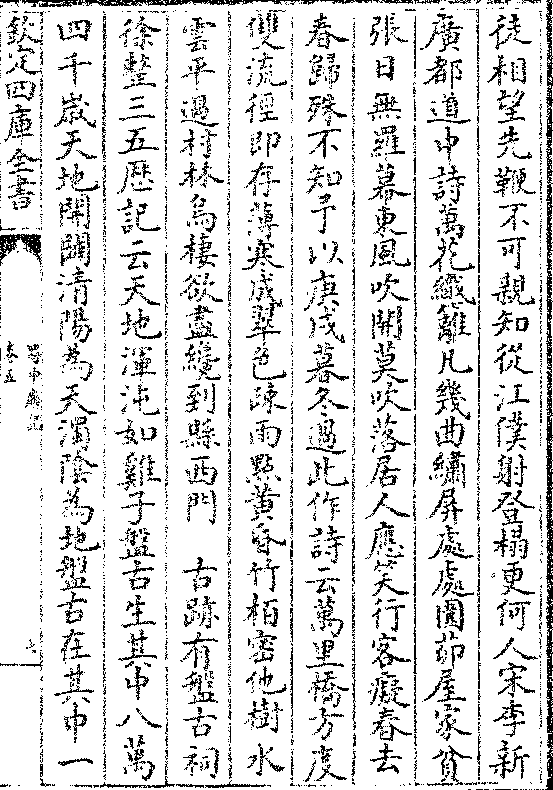 徒相望先鞭不可親知從江僕射登榻更何人宋李新
廣都道中詩萬花織籬凡幾曲繡屏處處圍茆屋家貧
張日無羅幕東風吹開莫吹落居人應笑行客癡春去
春歸殊不知予以庚戌暮冬過此作詩云萬里橋方度
雙流徑即存薄寒成翠色疎雨㸃黃昏竹柏密他樹水
雲平過村林烏棲欲盡纔到縣西門　古跡有盤古祠
徐整三五歴記云天地渾沌如雞子盤古生其中八萬
四千嵗天地開闢清陽為天濁陰為地盤古在其中一
欽定四庫全書
蜀中廣記
卷五